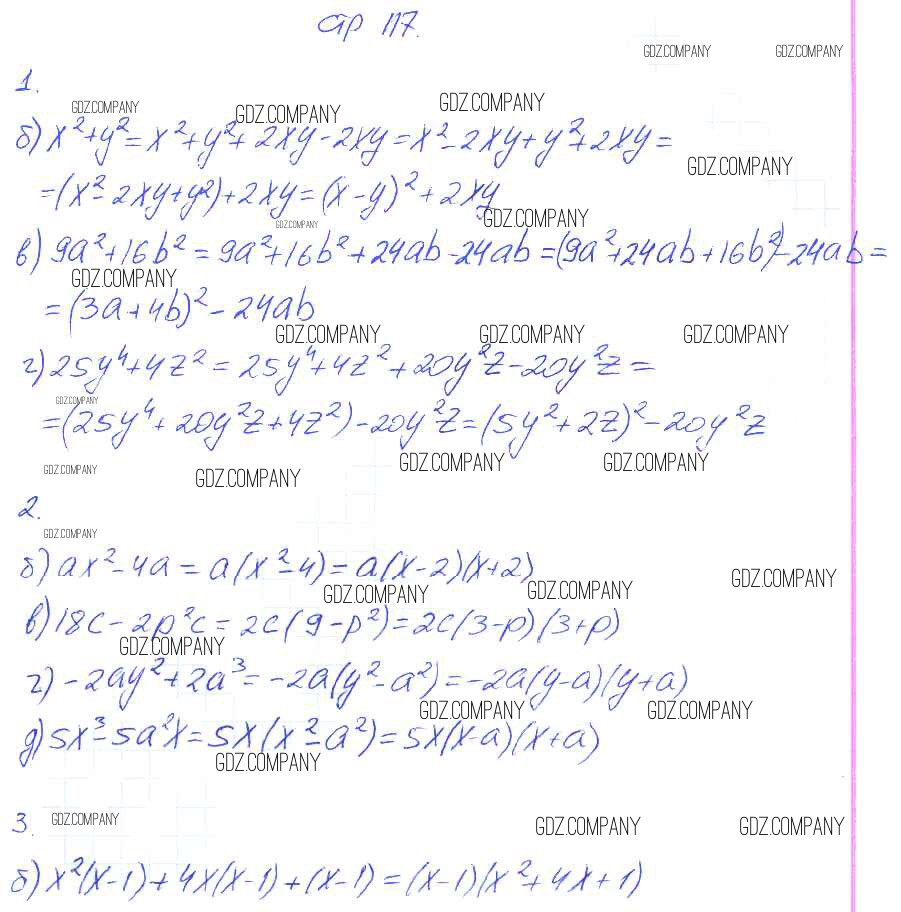 стр 117.
GDZ.COMPANY GDZ.COMPANY
1.
GDZ.COMPANY GDZ.COMPANY GDZ.COMPANY
б) x²+y² = x²+y²+2xy-2xy = x²-2xy+y²+2xy =
GDZ.COMPANY
=(x²-2xy+y²)+2xy = (x-y)²+2xy
GDZ.COMPANY GDZ.COMPANY
в) 9a²+16b² = 9a²+16b²+24ab-24ab = (9a²+24ab+16b²)-24ab =
GDZ.COMPANY
= (3a+4b)²-24ab
GDZ.COMPANY GDZ.COMPANY GDZ.COMPANY
г) 25y⁴+4z² = 25y⁴+4z²+20y²z-20y²z =
GDZ.COMPANY
=(25y⁴+20y²z+4z²)-20y²z = (5y²+2z)²-20y²z
GDZ.COMPANY GDZ.COMPANY GDZ.COMPANY GDZ.COMPANY
2.
GDZ.COMPANY
б) ax²-4a = a(x²-4) = a(x-2)(x+2)
GDZ.COMPANY GDZ.COMPANY GDZ.COMPANY
в) 18c-2p²c = 2c(9-p²) = 2c(3-p)(3+p)
GDZ.COMPANY
г) -2ay²+2a³ = -2a(y²-a²) = -2a(y-a)(y+a)
GDZ.COMPANY GDZ.COMPANY
д) 5x³-5a²x = 5x(x²-a²) = 5x(x-a)(x+a)
GDZ.COMPANY
3.
GDZ.COMPANY GDZ.COMPANY GDZ.COMPANY
б) x²(x-1)+4x(x-1)+(x-1) = (x-1)(x²+4x+1)